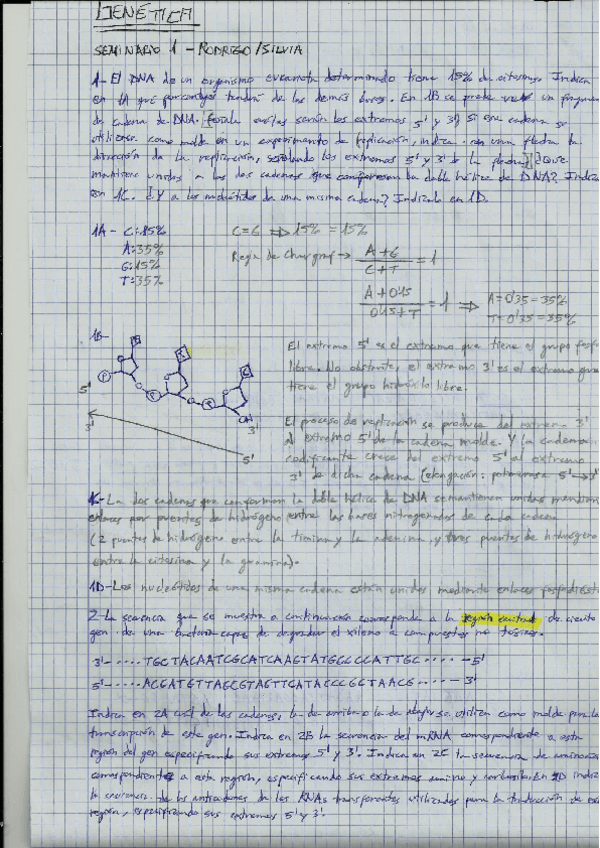 GENÉTICA
SEMINARIO 1 - RODRIGO/SILVIA
1- El DNA de un organismo eucariota determinado tiene 15% de citosina. Indica
en 1A qué porcentaje tendrá de las demás bases. En 1B se puede ver un fragmento
de cadena de DNA. Señala cuáles serían los extremos 5' y 3'. Si esa cadena se
utilizase como molde en un experimento de replicación, indica con una flecha la
dirección de la replicación, señalando los extremos 5' y 3' de la flecha. ¿Qué
mantiene unidas a las dos cadenas que conforman la doble hélice de DNA? Indica
en 1C. ¿Y a los nucleótidos de una misma cadena? Indícalo en 1D.
1A - C: 15%
A: 35%
G: 15%
T: 35%
C=G ⟹ 15% = 15%
Regla de Chargraf → A + G / C + T = 1
A + 0'15 / 0'15 + T = 1 ⟹ A = 0'35 - 35%
T = 0'35 = 35%
1B-
P
P
P
OH
5'
3'
3'
5'
El extremo 5' es el extremo que tiene el grupo
libre. No obstante, el extremo 3' es el extremo que
tiene el grupo hidroxilo libre.
El proceso de replicación se produce del 3'
al extremo 5' de la cadena molde. Y la cadena
codificante crece del extremo 5' al extremo
3' de dicha cadena (elongación: 5' → 3'
1C- La dos cadenas que conforman la doble hélice de DNA se mantienen unidas
enlaces por puentes de hidrógeno entre las bases nitrogenadas de cada cadena
(2 puentes de hidrógeno entre la timina y la adenina, y tres puentes de hidrógeno
entre la citosina y la guanina).
1D- Los nucleótidos de una misma cadena están unidos mediante enlaces
2- La secuencia que se muestra a continuación corresponde a la región central de cierto
gen de una bacteria capaz de degradar el xileno a compuestos no tóxicos.
3'- ····· TGCTACAATCGCATCAAGTATGGCCGCATTGC ····· - 5'
5'- ····· ACGATGTTAGCGTAGTTCATACCGGCTAACG ····· - 3'
Indica en 2A cuál de las cadenas, la de arriba o la de abajo se utiliza como molde para la
transcripción de este gen. Indica en 2B la secuencia del mRNA correspondiente a esta
región del gen especificando sus extremos 5' y 3'. Indica en 2C la secuencia de
correspondiente a esta región, especificando sus extremos amino y carboxilo. En 2D indica
la secuencia de los anticodones de los RNAs transferentes utilizados para la traducción de
región, especificando sus extremos 5' y 3'.